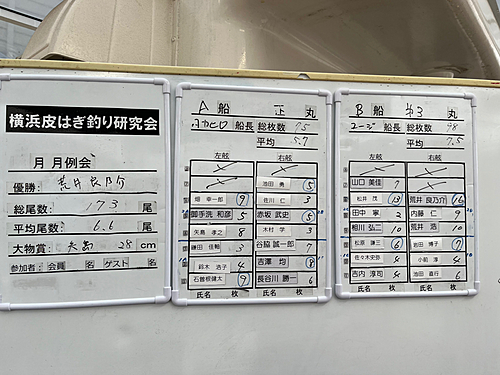 横浜皮はぎ釣り研究会
月 月例会
優勝: 荒井良乃介
総尾数: 173 尾
平均尾数: 6.6 尾
大物賞: 矢島 28 cm
参加者: 会員 名 ゲスト 名
A 船 正 丸
船長 総枚数 75
平均 5.7
左舷 右舷
池田 勇 5
畑 幸一郎 9 佐川 仁 3
御手洗 和彦 5 赤坂 武史 5
矢島 孝之 8 木村 学 3
鎌田 佳輔 3 谷脇 誠一郎 7
鈴木 浩子 4 吉澤 均 8
石曽根健太 9 長谷川 勝一 6
氏名 枚 氏名 枚
B 船 第3 丸
ユージ 船長 総枚数 98
平均 7.5
左舷 右舷
山口 美佳 7
松井 茂 13 荒井 良乃介 16
田中 寧 2 内藤 仁 9
相川 弘二 10 荒井 浩 10
松原 謙三 6 池田 博子 7
佐々木史弥 4 小前 淳 4
吉内 淳司 4 池田 直行 6
氏名 枚 氏名 枚